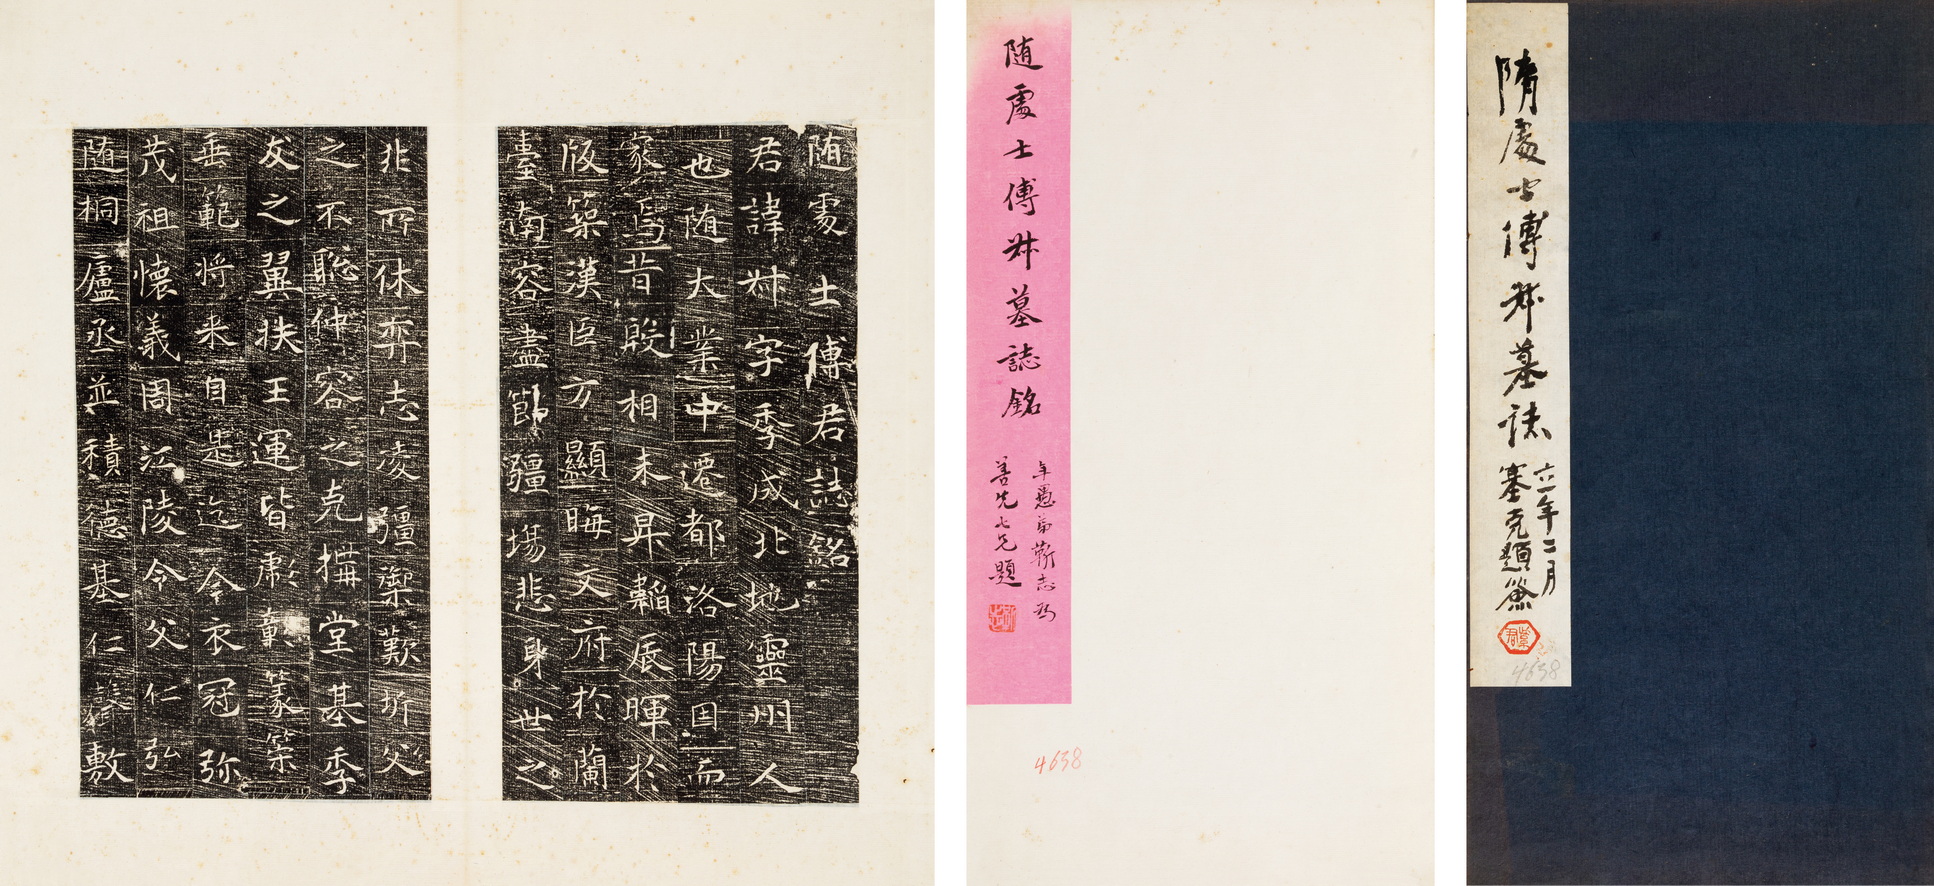 随處士傅君誌銘
君諱叔字季成北地靈州人
也随大業中遷都洛陽因而
家焉昔殷相未昇韜辰暉於
版築漢臣方顯晦文府於蘭
臺南容盡節疆埸悲身世之
非所休弈志凌彊禦歎圻父
之不聡仲容之克搆堂基季
友之翼扶王運皆彪章篆築
垂範将来自是迄今衣冠弥
茂祖懷義周江陵令父仁弘
随桐廬丞並積德基仁敷
随處士傅叔墓誌銘
年愚弟靳志為
善先七兄題
4638
隋處士傅叔墓誌
六一年二月
塞克題簽
4638